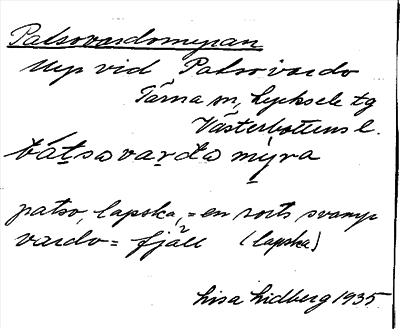 Patsovardomyran
Myr vid Patsovardo
Tärna sn, Lycksele tg
Västerbottens l.
bátsavarđa mýra
patso, lapska, = en sorts svamp
vardo = fjäll (lapska)
Lisa Lidberg 1935